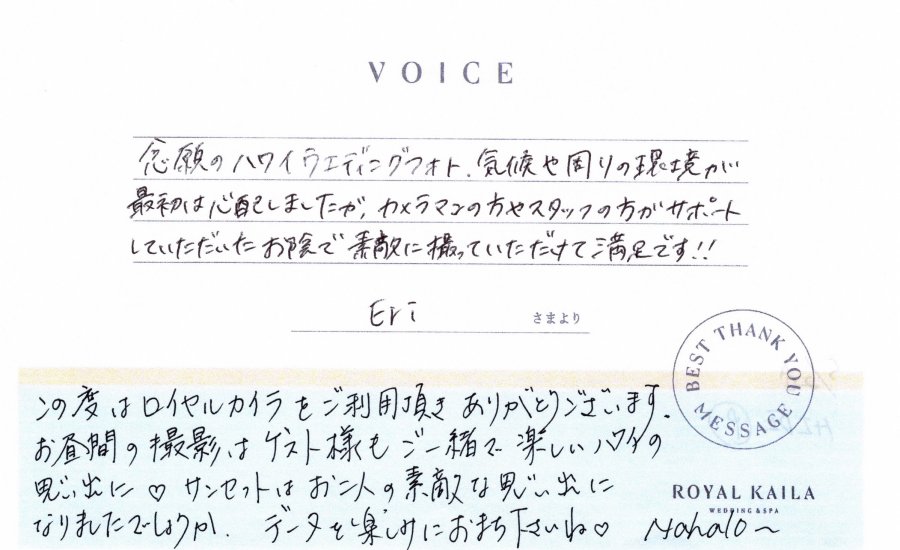 VOICE
念願のハワイウエディングフォト、気候や周りの環境が
最初は心配しましたが、カメラマンの方やスタッフの方がサポート
していただいたお陰で素敵に撮っていただけて満足です!!
Eri さまより
BEST THANK YOU MESSAGE
この度はロイヤルカイラをご利用頂きありがとうございます.
お昼間の撮影はゲスト様もご一緒で楽しいハワイの
思い出に♡ サンセットはお二人の素敵な思い出に
なりましたでしょうか. データを楽しみにお待ち下さいね♡ Mahalo~
ROYAL KAILA
WEDDING & SPA